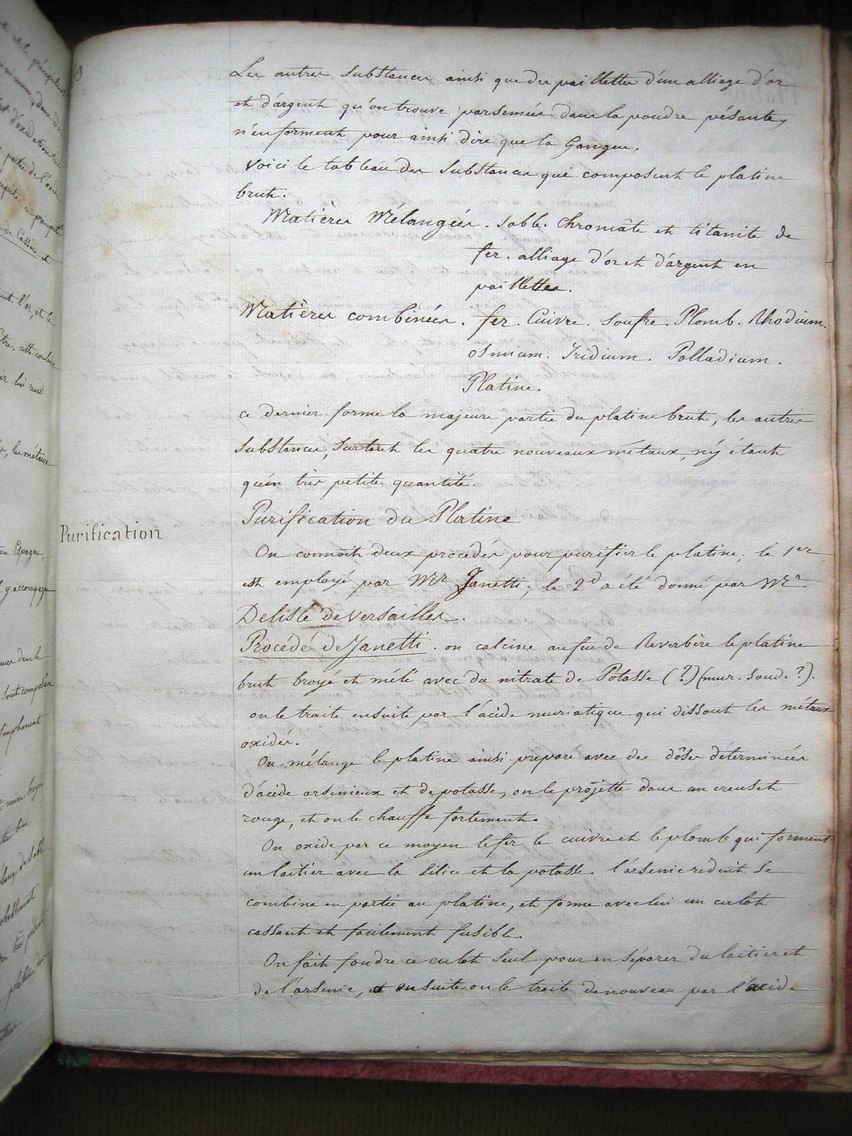 Les autres Substances ainsi que des paillettes d'un alliage d'or
et d'argent qu'on trouve parsemées dans la poudre pésante,
n'en forment pour ainsi dire que la Gangue.
Voici le tableau des Substances qui composent le platine
brut.
Matières Mélangées. Sable Chromâte et titanite de
fer. alliage d'or et d'argent en
paillettes.
Matières combinées. fer. Cuivre. Souffre. Plomb. Rhodium.
osmium. Iridium. Palladium.
Platine.
ce dernier forme la majeure partie du platine brut, les autres
Substances, surtout les quatre nouveaux métaux, n'y étant
qu'en très petite quantité.
Purification
Purification du Platine
On connoit deux procédés pour purifier le platine; le 1er
est employé par Mr Janetti; le 2d a été donné par Mr
Delisle de Versailles.
Procédé de Janetti. on calcine au feu de Reverbère le platine
brut broyé et mêlé avec du nitrate de Potasse (?) (mur. Soude?).
on le traite ensuite par l'acide muriatique qui dissout les métaux
oxidés.
On mélange le platine ainsi preparé avec des dôses déterminées
d'acide arsenieux et de potasse, on le projette dans un creuset
rouge, et on le chauffe fortement.
On oxide par ce moyen le fer le cuivre et le plomb qui forment
un laitier avec la Silice et la potasse. l'arsenic reduit Se
combine en partie au platine, et forme avec lui un culot
cassant et facilement fusible.
On fait foudre ce culot Seul pour en séparer du laitier et
de l'arsenic, et ensuite on le traite de nouveau par l'acide